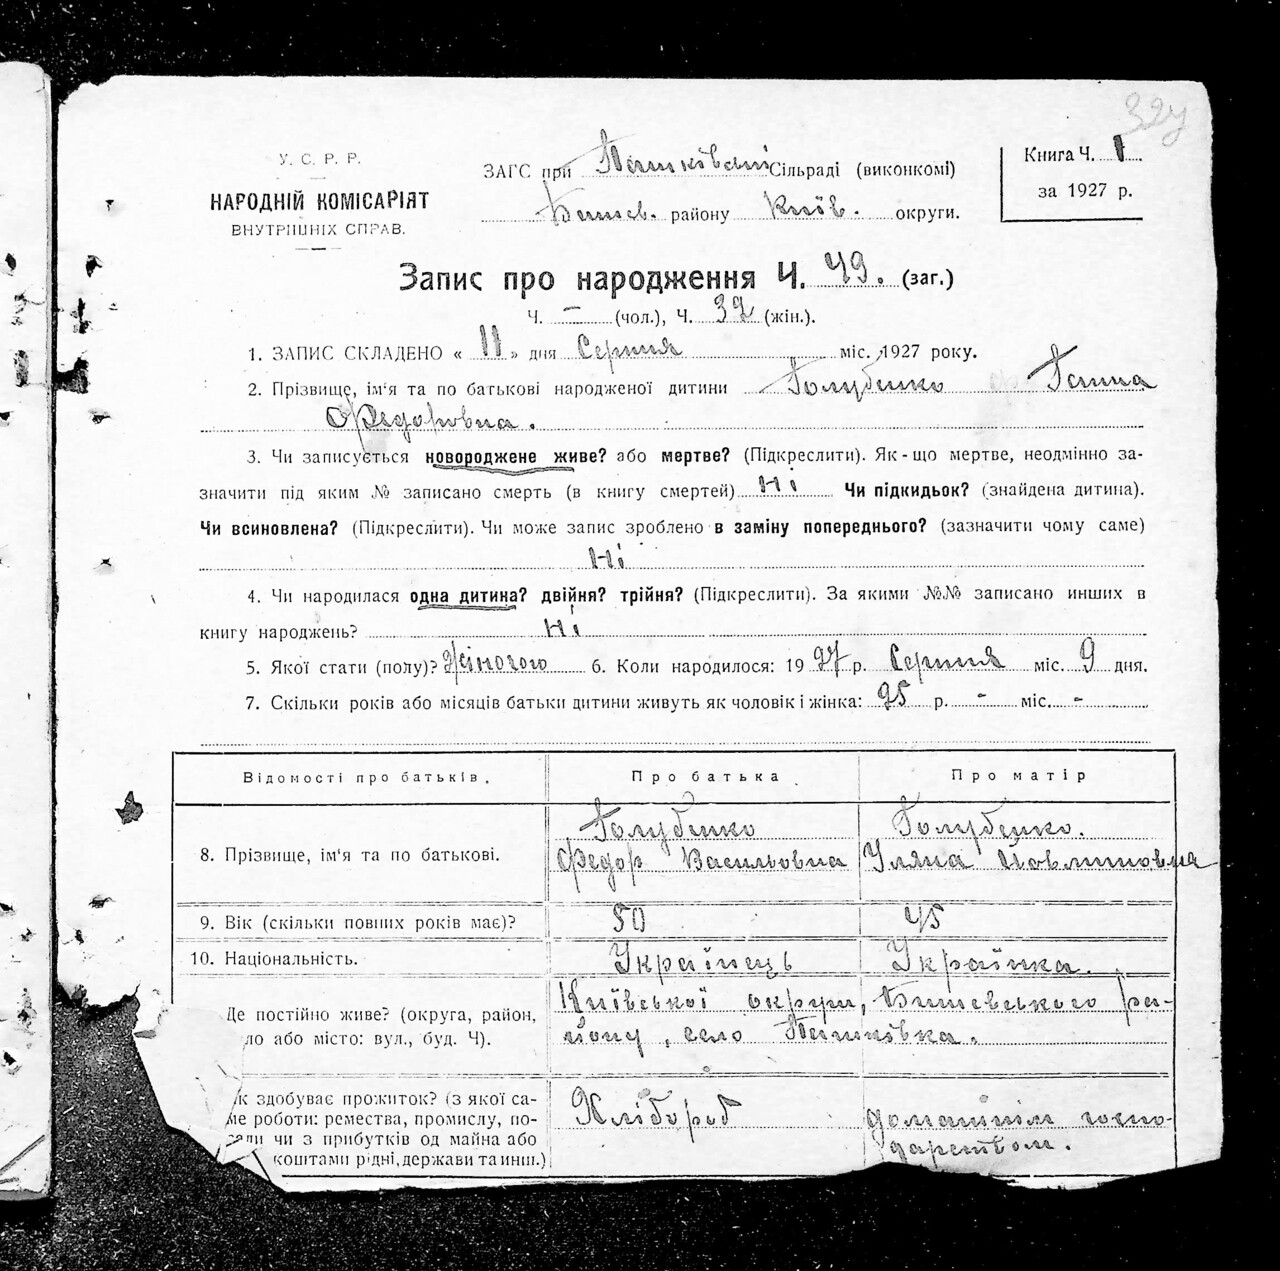 324
У. С. Р. Р.
НАРОДНІЙ КОМІСАРІЯТ
ВНУТРІШНІХ СПРАВ.
ЗАГС при Пашківській Сільраді (виконкомі)
Бишев. району Київ. округи.
Книга Ч. 1
за 1927 р.
Запис про народження Ч. 49. (заг.)
Ч. - (чол.), Ч. 32 (жін.).
1. ЗАПИС СКЛАДЕНО « 11 » дня Серпня міс. 1927 року.
2. Прізвище, ім'я та по батькові народженої дитини Голубенко Ганна
Федоровна.
3. Чи записується новороджене живе? або мертве? (Підкреслити). Як-що мертве, неодмінно за-
значити під яким № записано смерть (в книгу смертей) Ні Чи підкидьок? (знайдена дитина).
Чи всиновлена? (Підкреслити). Чи може запис зроблено в заміну попереднього? (зазначити чому саме)
Ні
4. Чи народилася одна дитина? двійня? трійня? (Підкреслити). За якими №№ записано инших в
книгу народжень? Ні
5. Якої стати (полу)? Жіночого 6. Коли народилося: 1927 р. Серпня міс. 9 дня.
7. Скільки років або місяців батьки дитини живуть як чоловік і жінка: 25 р. - міс. -
Відомості про батьків. Про батька Про матір
8. Прізвище, ім'я та по батькові.
Голубенко
Федор Васильовна
Голубенко.
Уляна
9. Вік (скільки повних років має)? 50 45
10. Національність. Українець Українка.
Де постійно живе? (округа, район,
ло або місто: вул., буд. Ч).
Київської округи, Бишевського ра-
йону, село Пашковка.
к здобуває прожиток? (з якої са-
ме роботи: ремества, промислу, по-
чи з прибутків од майна або
коштами рідні, держави та инш.)
Хлібороб
домашнім госпо-
дарством.